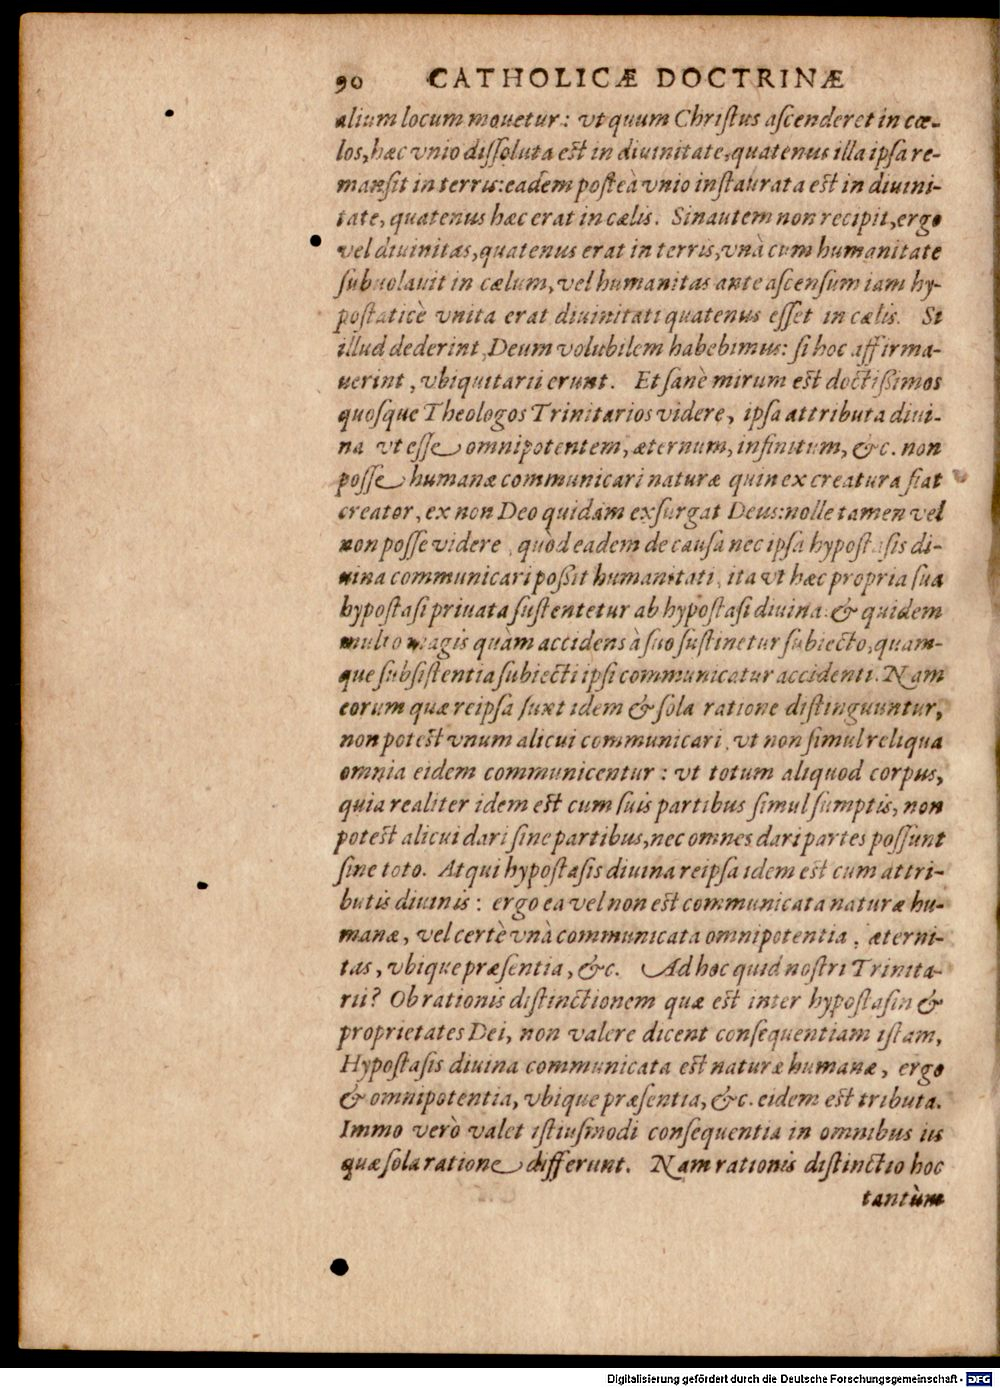 90 CATHOLICÆ DOCTRINÆ
alium locum mouetur: vt quum Chriſtus aſcenderet in cœ-
los, hæc vnio diſſoluta est in diuinitate, quatenus illa ipſa re-
manſit in terris: eadem poſteà vnio inſtaurata est in diuini-
tate, quatenus hæc erat in cælis. Sin autem non recipit, ergo
vel diuinitas, quatenus erat in terris, vnà cum humanitate
ſubuolauit in cælum, vel humanitas ante aſcenſum iam hy-
poſtaticè vnita erat diuinitati quatenus eſſet in cælis. Si
illud dederint, Deum volubilem habebimus: ſi hoc affirma-
uerint, vbiquitarii erunt. Et ſanè mirum est doctißimos
quoſque Theologos Trinitarios videre, ipſa attributa diui-
na vt eſſe omnipotentem, æternum, infinitum, &c. non
poſſe humanæ communicari naturæ quin ex creatura fiat
creator, ex non Deo quidam exſurgat Deus: nolle tamen vel
non poſſe videre, quòd eadem de cauſa nec ipſa hypoſtaſis di-
uina communicari poßit humanitati, ita vt hæc propria ſua
hypoſtaſi priuata ſuſtentetur ab hypoſtaſi diuina: & quidem
multo magis quàm accidens à ſuo ſuſtinetur ſubiecto, quam-
que ſubſiſtentia ſubiecti ipſi communicatur accidenti. Nam
eorum quæ reipſa ſunt idem & ſola ratione diſtinguuntur,
non potest vnum alicui communicari, vt non ſimul reliqua
omnia eidem communicentur: vt totum aliquod corpus,
quia realiter idem est cum ſuis partibus ſimul ſumptis, non
potest alicui dari ſine partibus, nec omnes dari partes poſſunt
ſine toto. Atqui hypoſtaſis diuina reipſa idem est cum attri-
butis diuinis: ergo ea vel non est communicata naturæ hu-
manæ, vel certè vnà communicata omnipotentia, æterni-
tas, vbique præſentia, &c. Ad hoc quid noſtri Trinita-
rii? Ob rationis diſtinctionem quæ est inter hypoſtaſin &
proprietates Dei, non valere dicent conſequentiam iſtam,
Hypoſtaſis diuina communicata est naturæ humanæ, ergo
& omnipotentia, vbique præſentia, &c. eidem est tributa.
Immo verò valet iſtiuſmodi conſequentia in omnibus iis
quæ ſola ratione differunt. Nam rationis diſtinctio hoc
tantùm
Digitalisierung gefördert durch die Deutsche Forschungsgemeinschaft - DFG